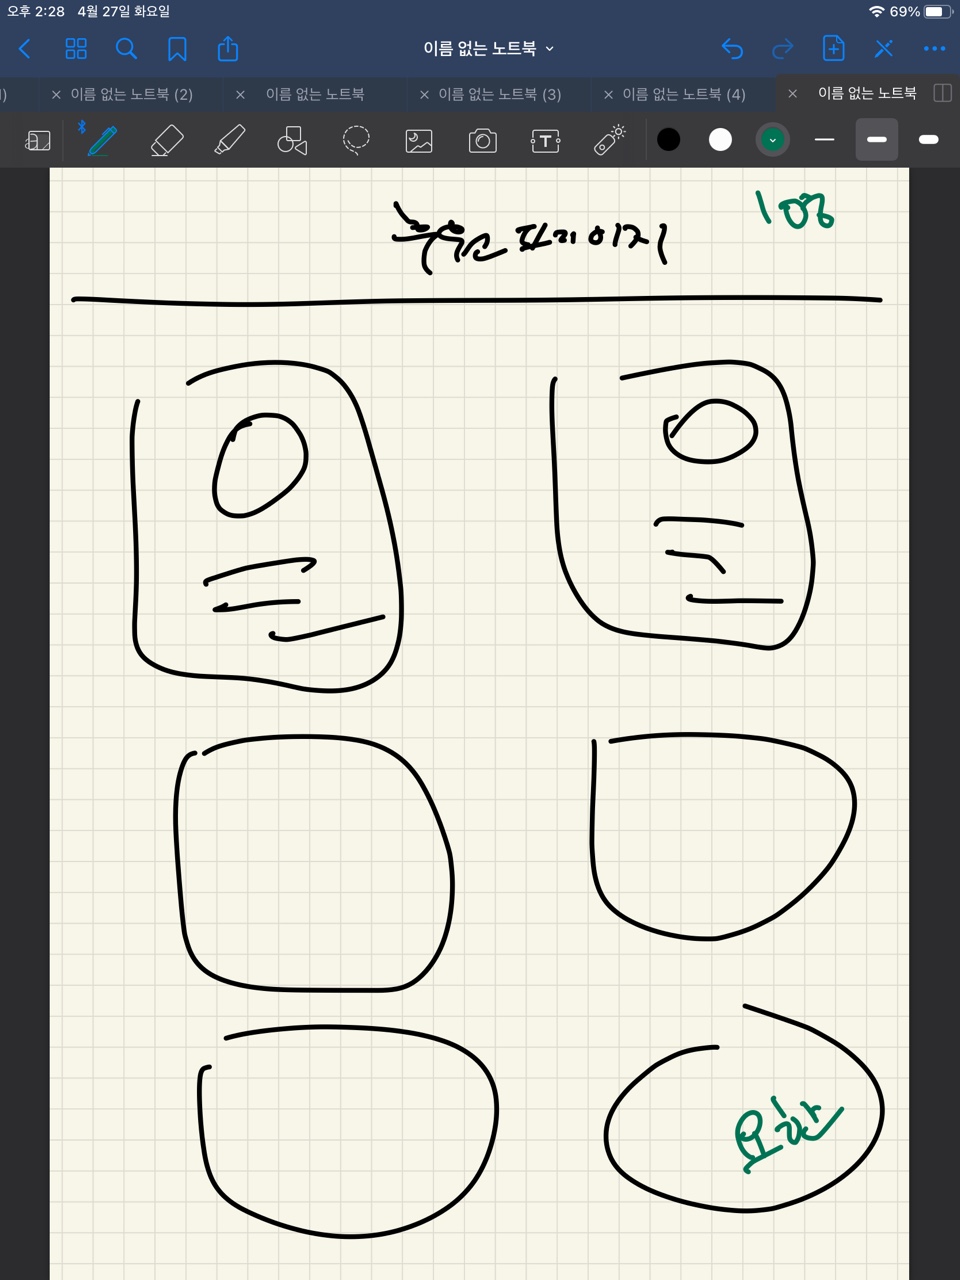 오후 2:28 4월 27일 화요일 69%
이름 없는 노트북
) 이름 없는 노트북 (2) 이름 없는 노트북 이름 없는 노트북 (3) 이름 없는 노트북 (4) 이름 없는 노트북
T